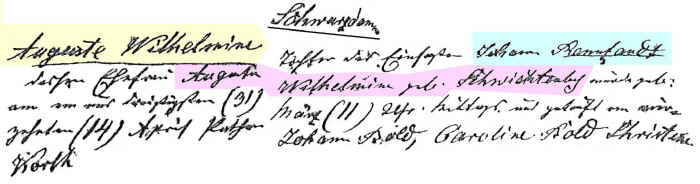 Schwarzdamm
Auguste Wilhelmine Tochter des Einsaßen Johann
dessen Ehefrau Auguste Wilhelmine geb. wurde geb:
am ein und dreißigsten (31) März (11) Uhr. Mittags und getauft am vier-
zehnten (14) April Pathen Johann Bold, Caroline Bold Christine